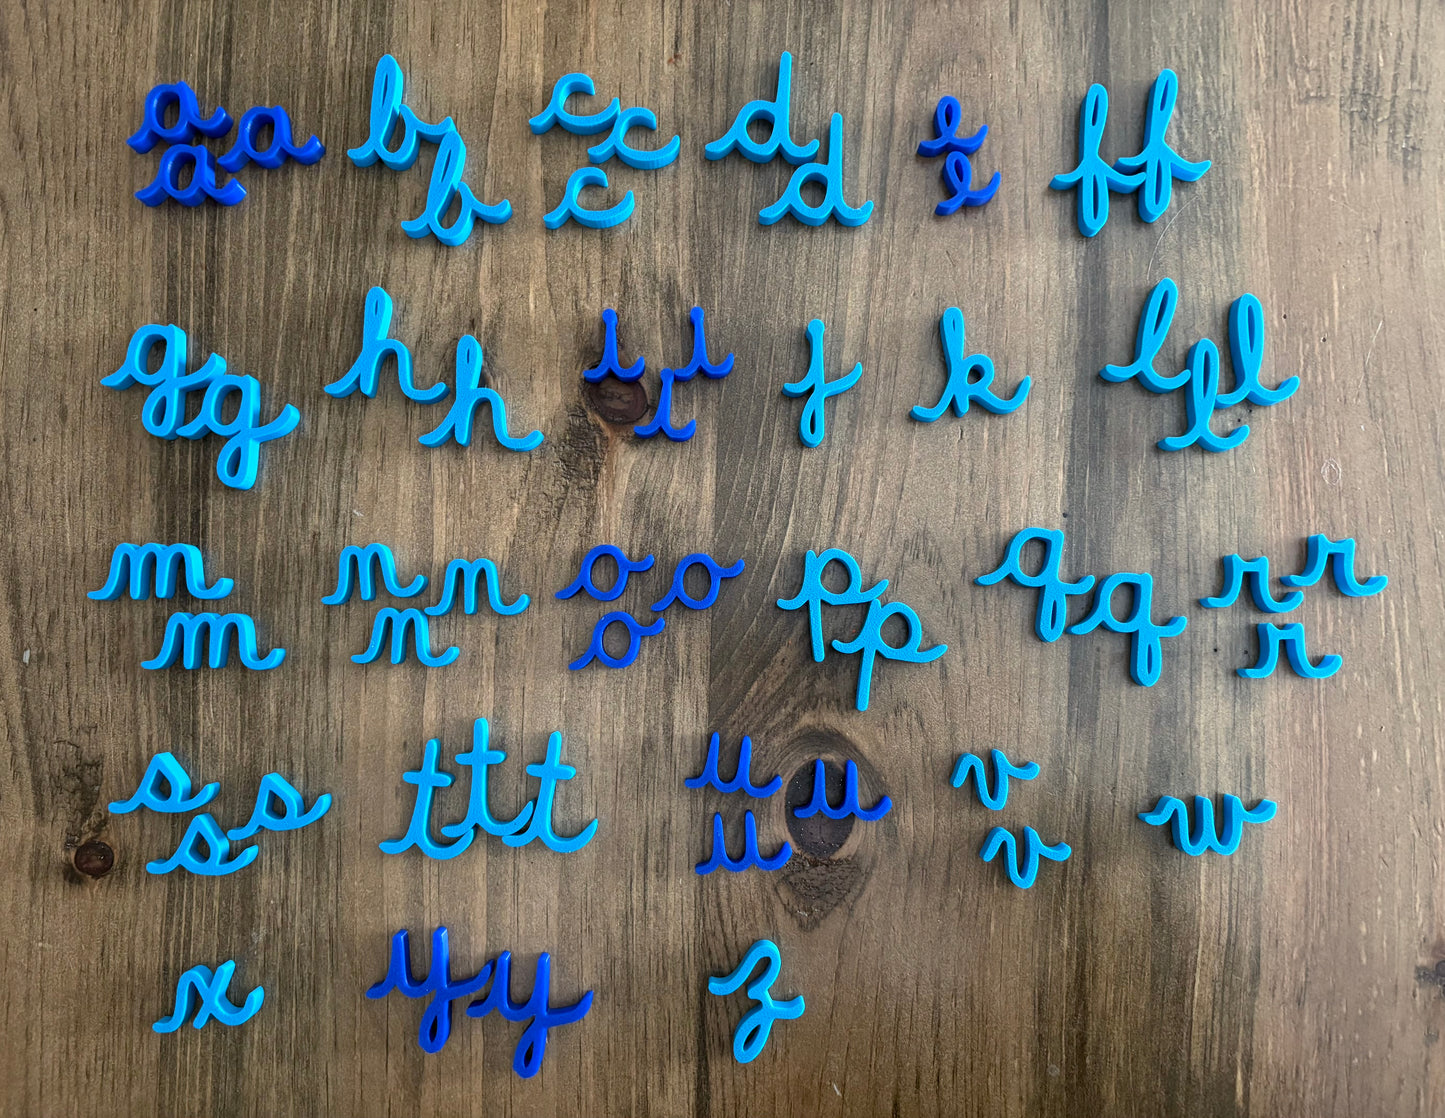 a a a b b c c c d d e e f f
g g h h i i i j k l l l
m m n n n o o o p p q q r r r
s s s t t t u u u v v w
x y y z